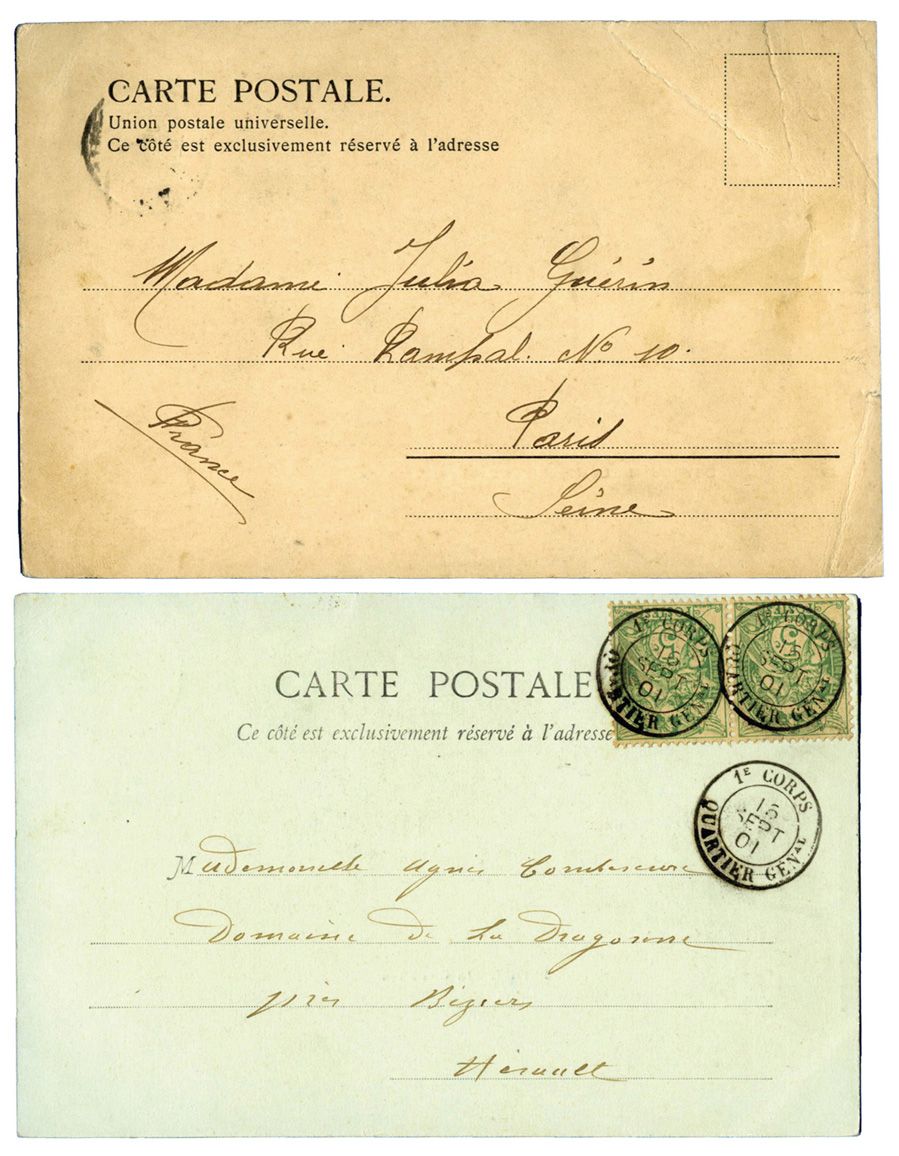 CARTE POSTALE.
Union postale universelle.
Ce côté est exclusivement réservé à l'adresse
Madame Julia Guérin
Rue Rampal. No 10.
France
Paris
Seine
CARTE POSTALE
Ce côté est exclusivement réservé à l'adresse
1E CORPS
15
SEPT
01
QUARTIER GENAL
1E CORPS
15
SEPT
01
QUARTIER GENAL
1E CORPS
15
SEPT
01
QUARTIER GENAL
Mademoiselle Agnès Combescure
Domaine de La Dragonne
près Béziers
Hérault